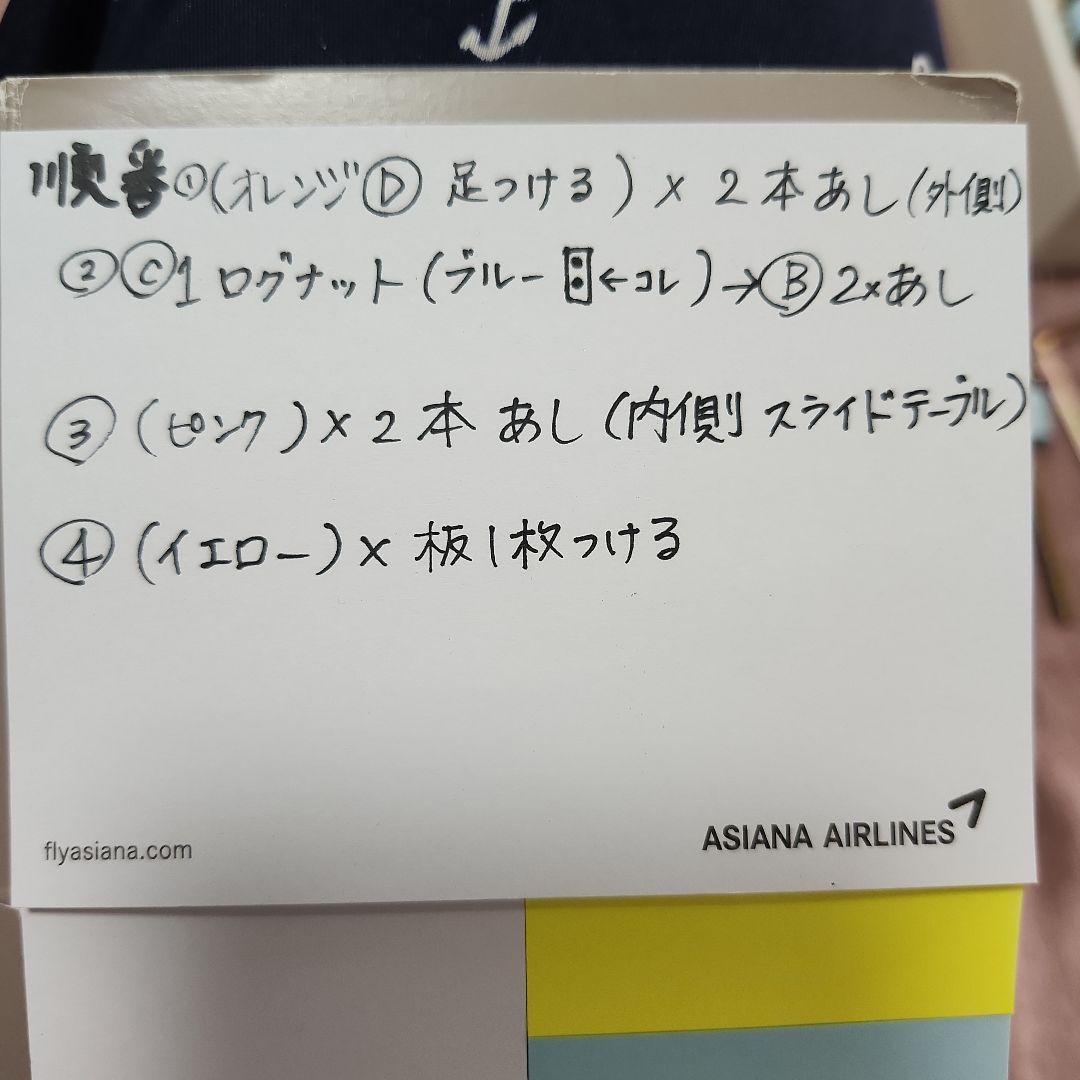 順番①(オレンジⒹ 足つける)×2本あし(外側)
②Ⓒ1ログナット(ブルー ←コレ)→Ⓑ2×あし
③(ピンク)×2本あし(内側 スライドテーブル)
④(イエロー)×板1枚つける
flyasiana.com
ASIANA AIRLINES